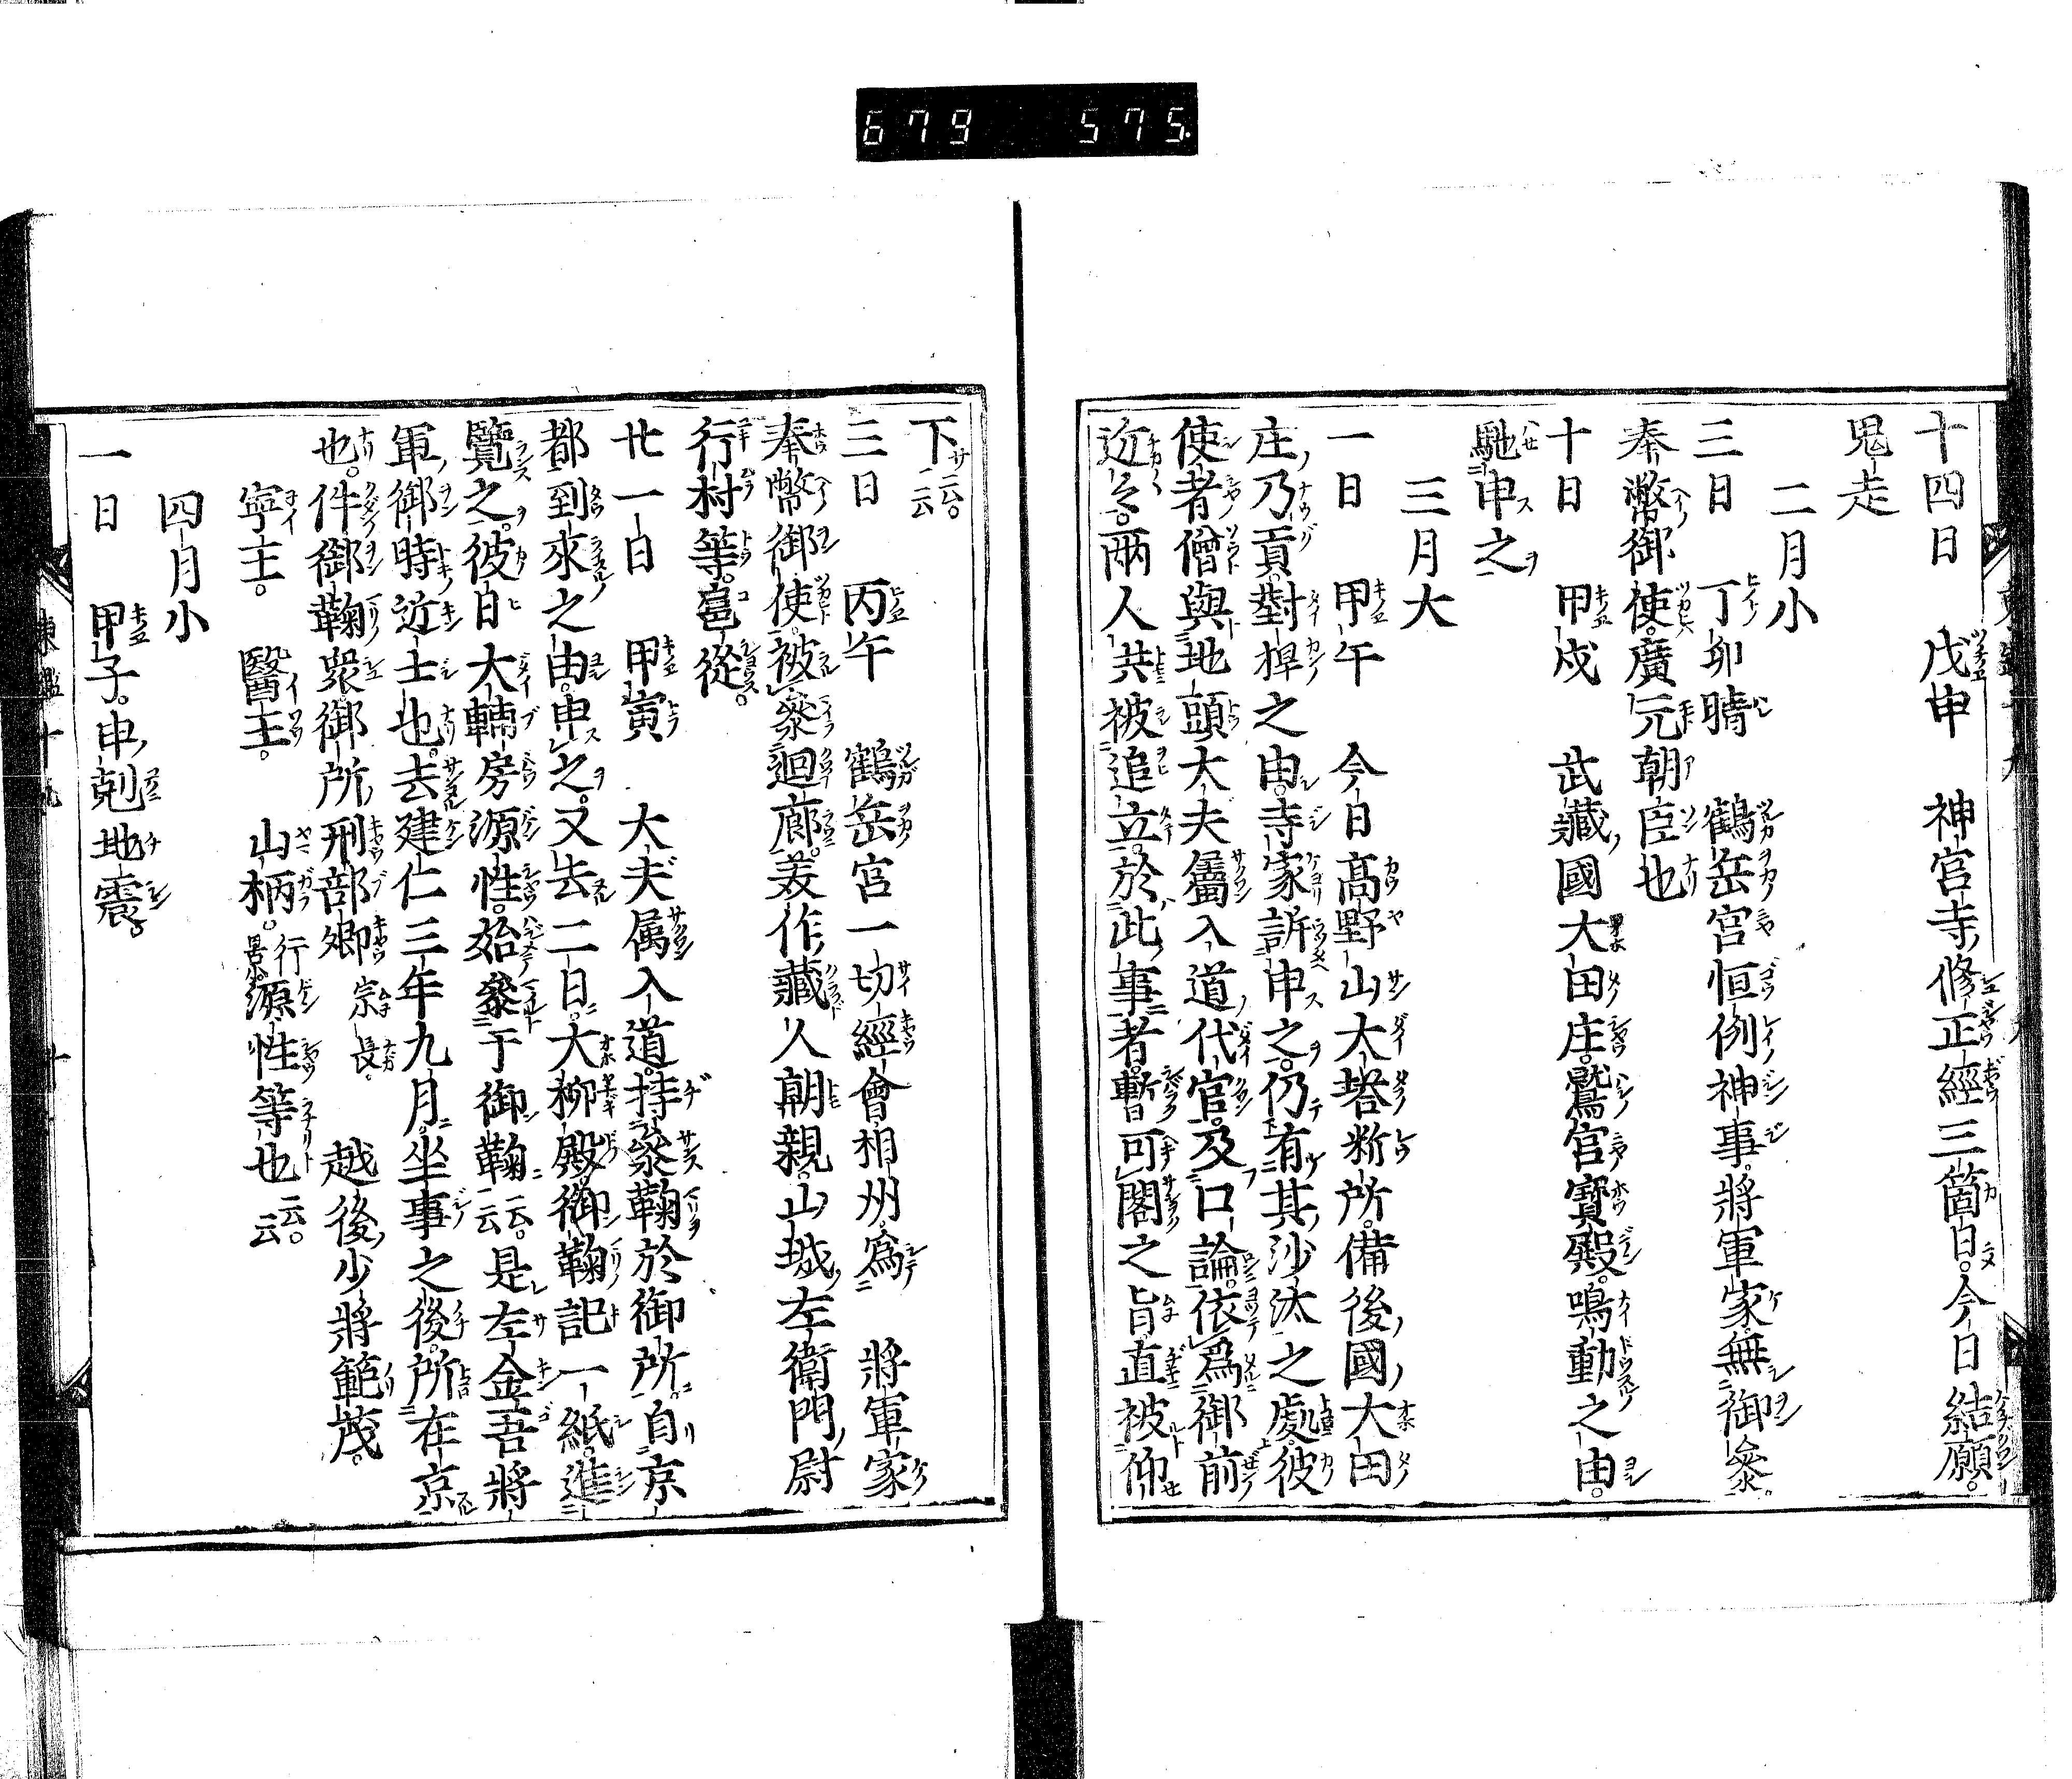 679 575.
十四日 戊申 神宮寺修正經三箇日。今日結願。
鬼走
二月小
三日 丁卯晴 鶴岳宮恒例神事。將軍家無御參。
奉幣御使。廣元朝臣也
十日 甲戌 武藏國大田庄。鷲宮寶殿。鳴動之由。
馳申之
三月大
一日 甲午 今日高野山大塔料所。備後國大田
庄乃貢。對捍之由。寺家訴申之。仍有其沙汰之處。彼
使者僧與地頭大夫屬入道代官。及口論。依爲御前
近々。兩人共被追立。於此事者。暫可閣之旨直被仰
下云云。
三日 丙午 鶴岳宮一切經會相州。爲 將軍家
奉幣御使。被參迴廊。美作藏人朝親。山城左衛門尉
行村等。扈從。
廿一日 甲寅 大夫属入道。持參鞠於御所。自京
都到來之由。申之。又去二日。大柳殿御鞠記一紙。進
覽之。彼日大輔房源性。始參于御鞠云云。是左金吾將
軍御時近士也。去建仁三年九月。坐事之後。所在京
也。件御鞠衆御所刑部卿宗長。 越後少將範茂。
寧王。 醫王。 山柄。行景。源性等也云云。
四月小
一日 甲子。申剋地震。